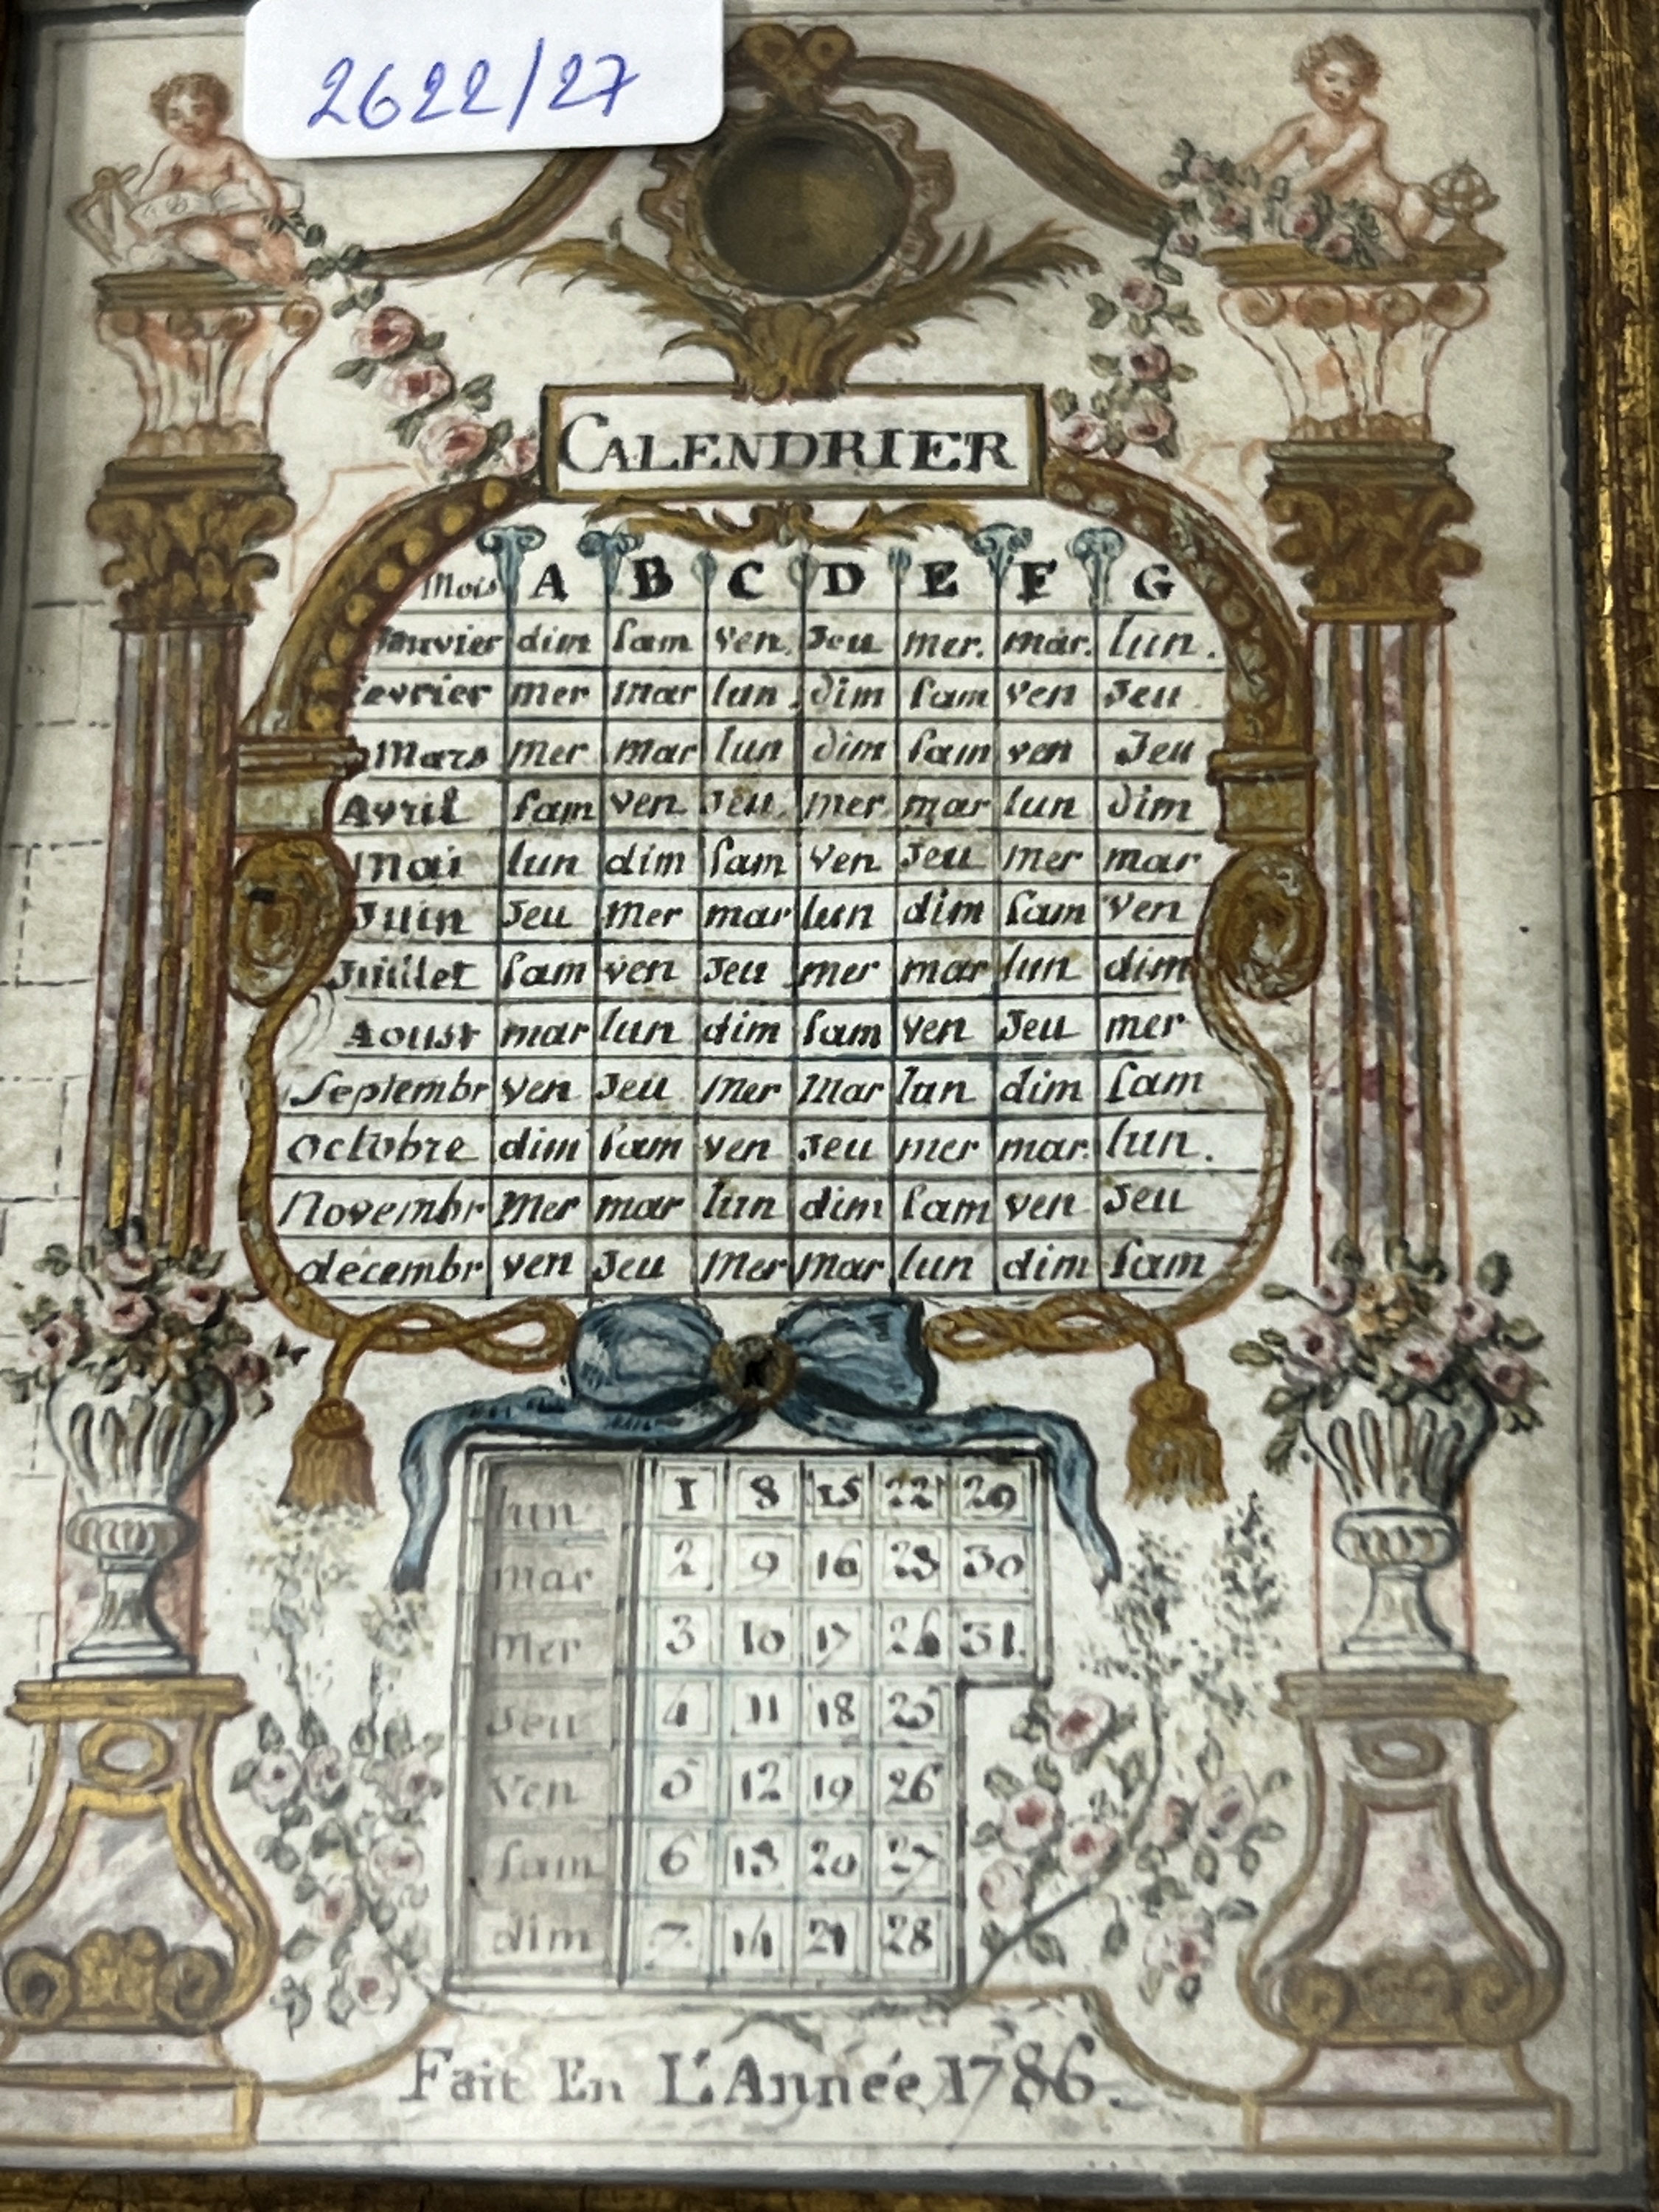 2622/27
CALENDRIER
Mois A B C D E F G
Janvier dim sam ven. Jeu mer. mar. lun.
fevrier mer mar lun dim sam ven Jeu
Mars mer mar lun dim sam ven Jeu
Avril sam ven Jeu mer mar lun dim
Mai lun dim sam ven Jeu mer mar
Juin Jeu mer mar lun dim sam ven
Juillet sam ven Jeu mer mar lun dim
Aoust mar lun dim sam ven Jeu mer
Septembr ven Jeu mer mar lun dim sam
Octobre dim sam ven Jeu mer mar. lun.
Novembr mer mar lun dim sam ven Jeu
decembr ven Jeu mer mar lun dim sam
lun 1 8 15 22 29
mar 2 9 16 23 30
mer 3 10 17 24 31.
Jeu 4 11 18 25
ven 5 12 19 26
sam 6 13 20 27
dim 7 14 21 28
Fait En L'Année 1786.